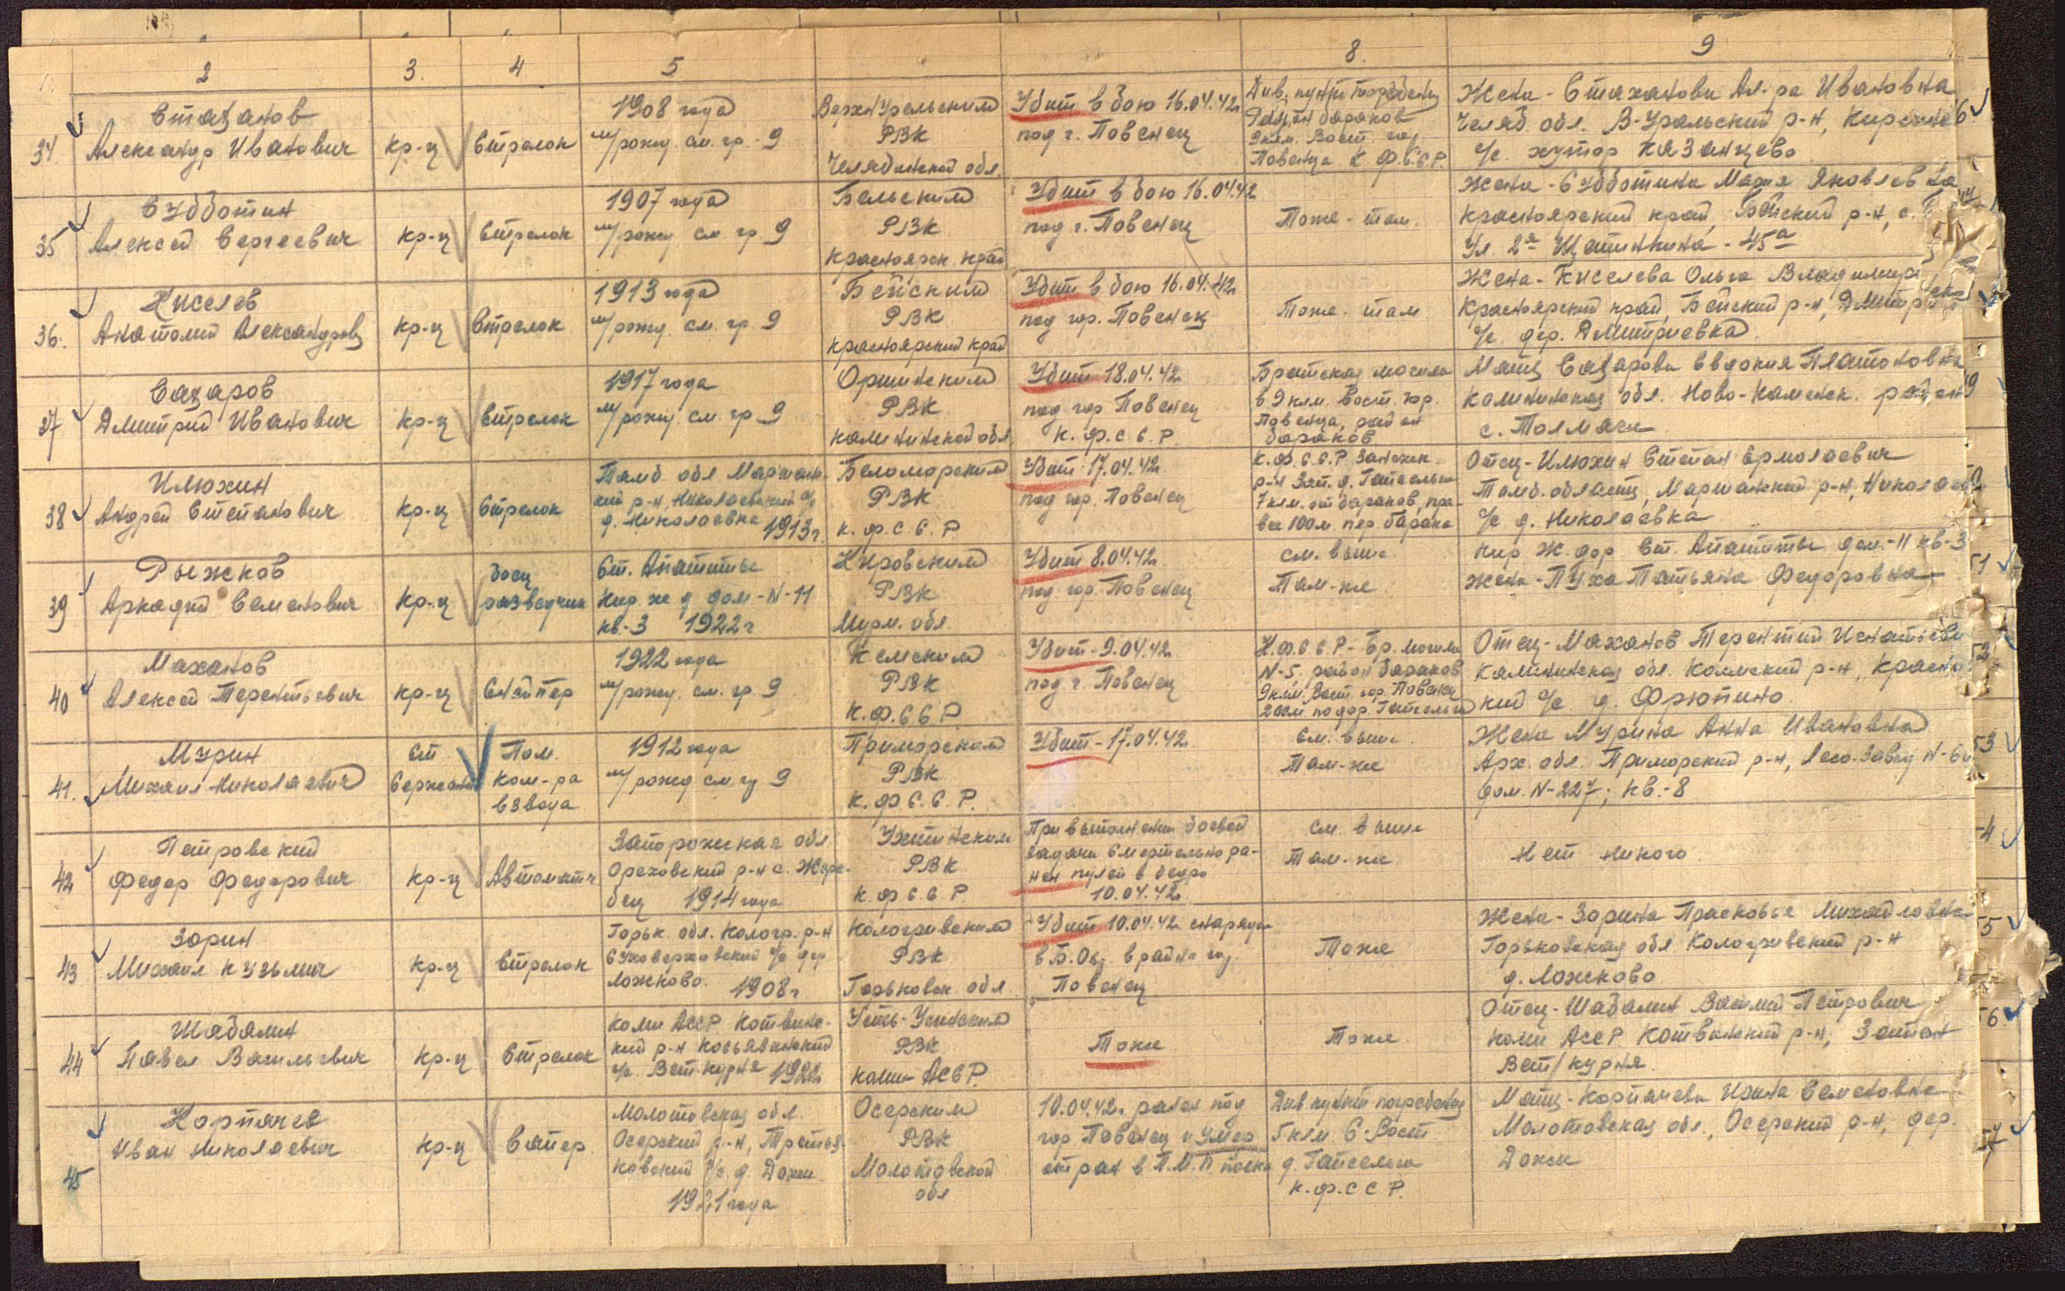 2 3. 4 5 8. 9
34
Стаханов
Александр Иванович
кр-ц
Стрелок
1908 года
м/рожд. см. гр. 9
Верхнуральским
РВК
Челябинской обл.
Убит в бою 16.04.42г
под г. Повенец
Див. пункт погребен.
Район бараков
9 клм. Вост. гор.
Повенца К.Ф.С.С.Р.
Жена - Стаханова Ал-ра Ивановна
Челяб. обл. В-Уральский р-н,
с/с. хутор Казанцево
35
Субботин
Алексей Сергеевич
кр-ц
Стрелок
1907 года
м/рожд. см. гр. 9
Бейским
РВК
Красноярск. край
Убит в бою 16.04.42
под г. Повенец
Тоже - там.
Жена - Субботина Мария Яковлевна
Красноярский край, Бейский р-н, с.
Ул 2я Щетинкина - 45а
36.
Киселев
Анатолий Александров
кр-ц
Стрелок
1913 года
м/рожд. см. гр. 9
Бейским
РВК
Красноярский край
Убит в бою 16.04.42г.
под гор. Повенец
Тоже - там
Жена - Киселева Ольга Владимир
Красноярский край, Бейский р-н, Дмитри
с/с. дер. Дмитриевка
37
Сазаров
Дмитрий Иванович
кр-ц
Стрелок
1917 года
м/рожд. см. гр. 9
Оршинским
РВК
Калининской обл
Убит 18.04.42
под гор Повенец
К.Ф.С.С.Р.
Братская могила
в 9 клм. Вост. гор.
Повенца, район
бараков
Мать Сазарова Евдокия Платоновна
Калининская обл. Ново-Каменск. район
с. Толмачи
38
Илюхин
Андрей Степанович
кр-ц
Стрелок
Тамб. обл Маршан-
кий р-н, Николаевский с/с
д. Николаевка 1913г.
Беломорским
РВК
К.Ф.С.С.Р
Убит 17.04.42.
под гор. Повенец
К.Ф.С.С.Р.
р-н Зап. д. Гапсельга
7 клм. от бараков, пра-
вее 100 м. пер. барака
Отец - Илюхин Степан Ермолаевич
Тамб. область, Маршанский р-н, Николаев
с/с д. Николаевка
39
Рыжков
Аркадий Семенович
кр-ц
боец
разведчик
Ст. Апатиты
Кир. ж д дом - N-11
кв-3 1922г
Кировским
РВК
Мурм. обл.
Убит 8.04.42.
под гор. Повенец
см. выше
Там-же
Кир. Ж. дор Ст. Апатиты дом.-11 кв-3
Жена - Пуха Татьяна Федоровна
51
40
Маханов
Алексей Терентьевич
кр-ц
Снайпер
1922 года
м/рожд. см. гр. 9
Кемским
РВК
К.Ф.С.С.Р
Убит - 9.04.42
под г. Повенец
К.Ф.С.С.Р - Бр. могила
N-5, район бараков
9 клм. Вост. гор. Повенец
200м по дор. Гапсельга
Отец - Маханов Терентий Игнатьеви
Калининская обл. Калмский р-н, Красно
кий с/с. д. Фрютино
41.
Мурин
Михаил Николаевич
Ст
Сержант
Пом.
ком-ра
взвода
1912 года
м/рожд см. гр 9
Приморским
РВК
К.Ф.С.С.Р.
Убит - 17.04.42
См. выше
Там-же
Жена Мурина Анна Ивановна
Арх. обл. Приморский р-н, Лесо-Завод N-6
дом. N-227, кв.-8
53
42
Петровский
Федор Федорович
кр-ц
Автоматч
Запорожская обл
Ореховский р-н с. Жере-
бец 1914 года
Ухтинским
РВК
К.Ф.С.С.Р
При выполнении боевой
задачи смертельно ра-
нен пулей в бедро
10.04.42.
См. выше
Там-же
Нет никого
43
Зорин
Михаил Кузьмич
кр-ц
Стрелок
Горьк. обл. Кологр. р-н
Суховерховский с/с дер
Ложково. 1908г
Кологривским
РВК
Горьковск. обл
Убит 10.04.42 снаряд.
в Б. Об. в районе гор.
Повенец
Тоже
Жена - Зорина Прасковья Михайловна
Горьковская обл Кологривский р-н
д. Ложково
55
44
Шабалин
Павел Васильевич
кр-ц
Стрелок
Коми АССР.
кий р-н
1922
Усть-Усинским
РВК
Коми АССР
Тоже
Тоже
Отец - Шабалин Василий Петрович
Коми АССР р-н, Затон
Вет/курья
56
45
Корпачев
Иван Николаевич
кр-ц
Сапер
Молотовская обл.
Осерский р-н, Третья-
ковский с/с. д. Дожи
1921 года
Осерским
РВК
Молотовской
обл
10.04.42г. ранен под
гор Повенец и умер
от ран в П.М.П. полка
Див пункт погребения
5 клм. С-Вост
д. Гапсельга
К.Ф.С.С.Р.
Мать - Корпачева Ирина Семеновна
Молотовская обл., Осерский р-н, дер.
Дожи
57